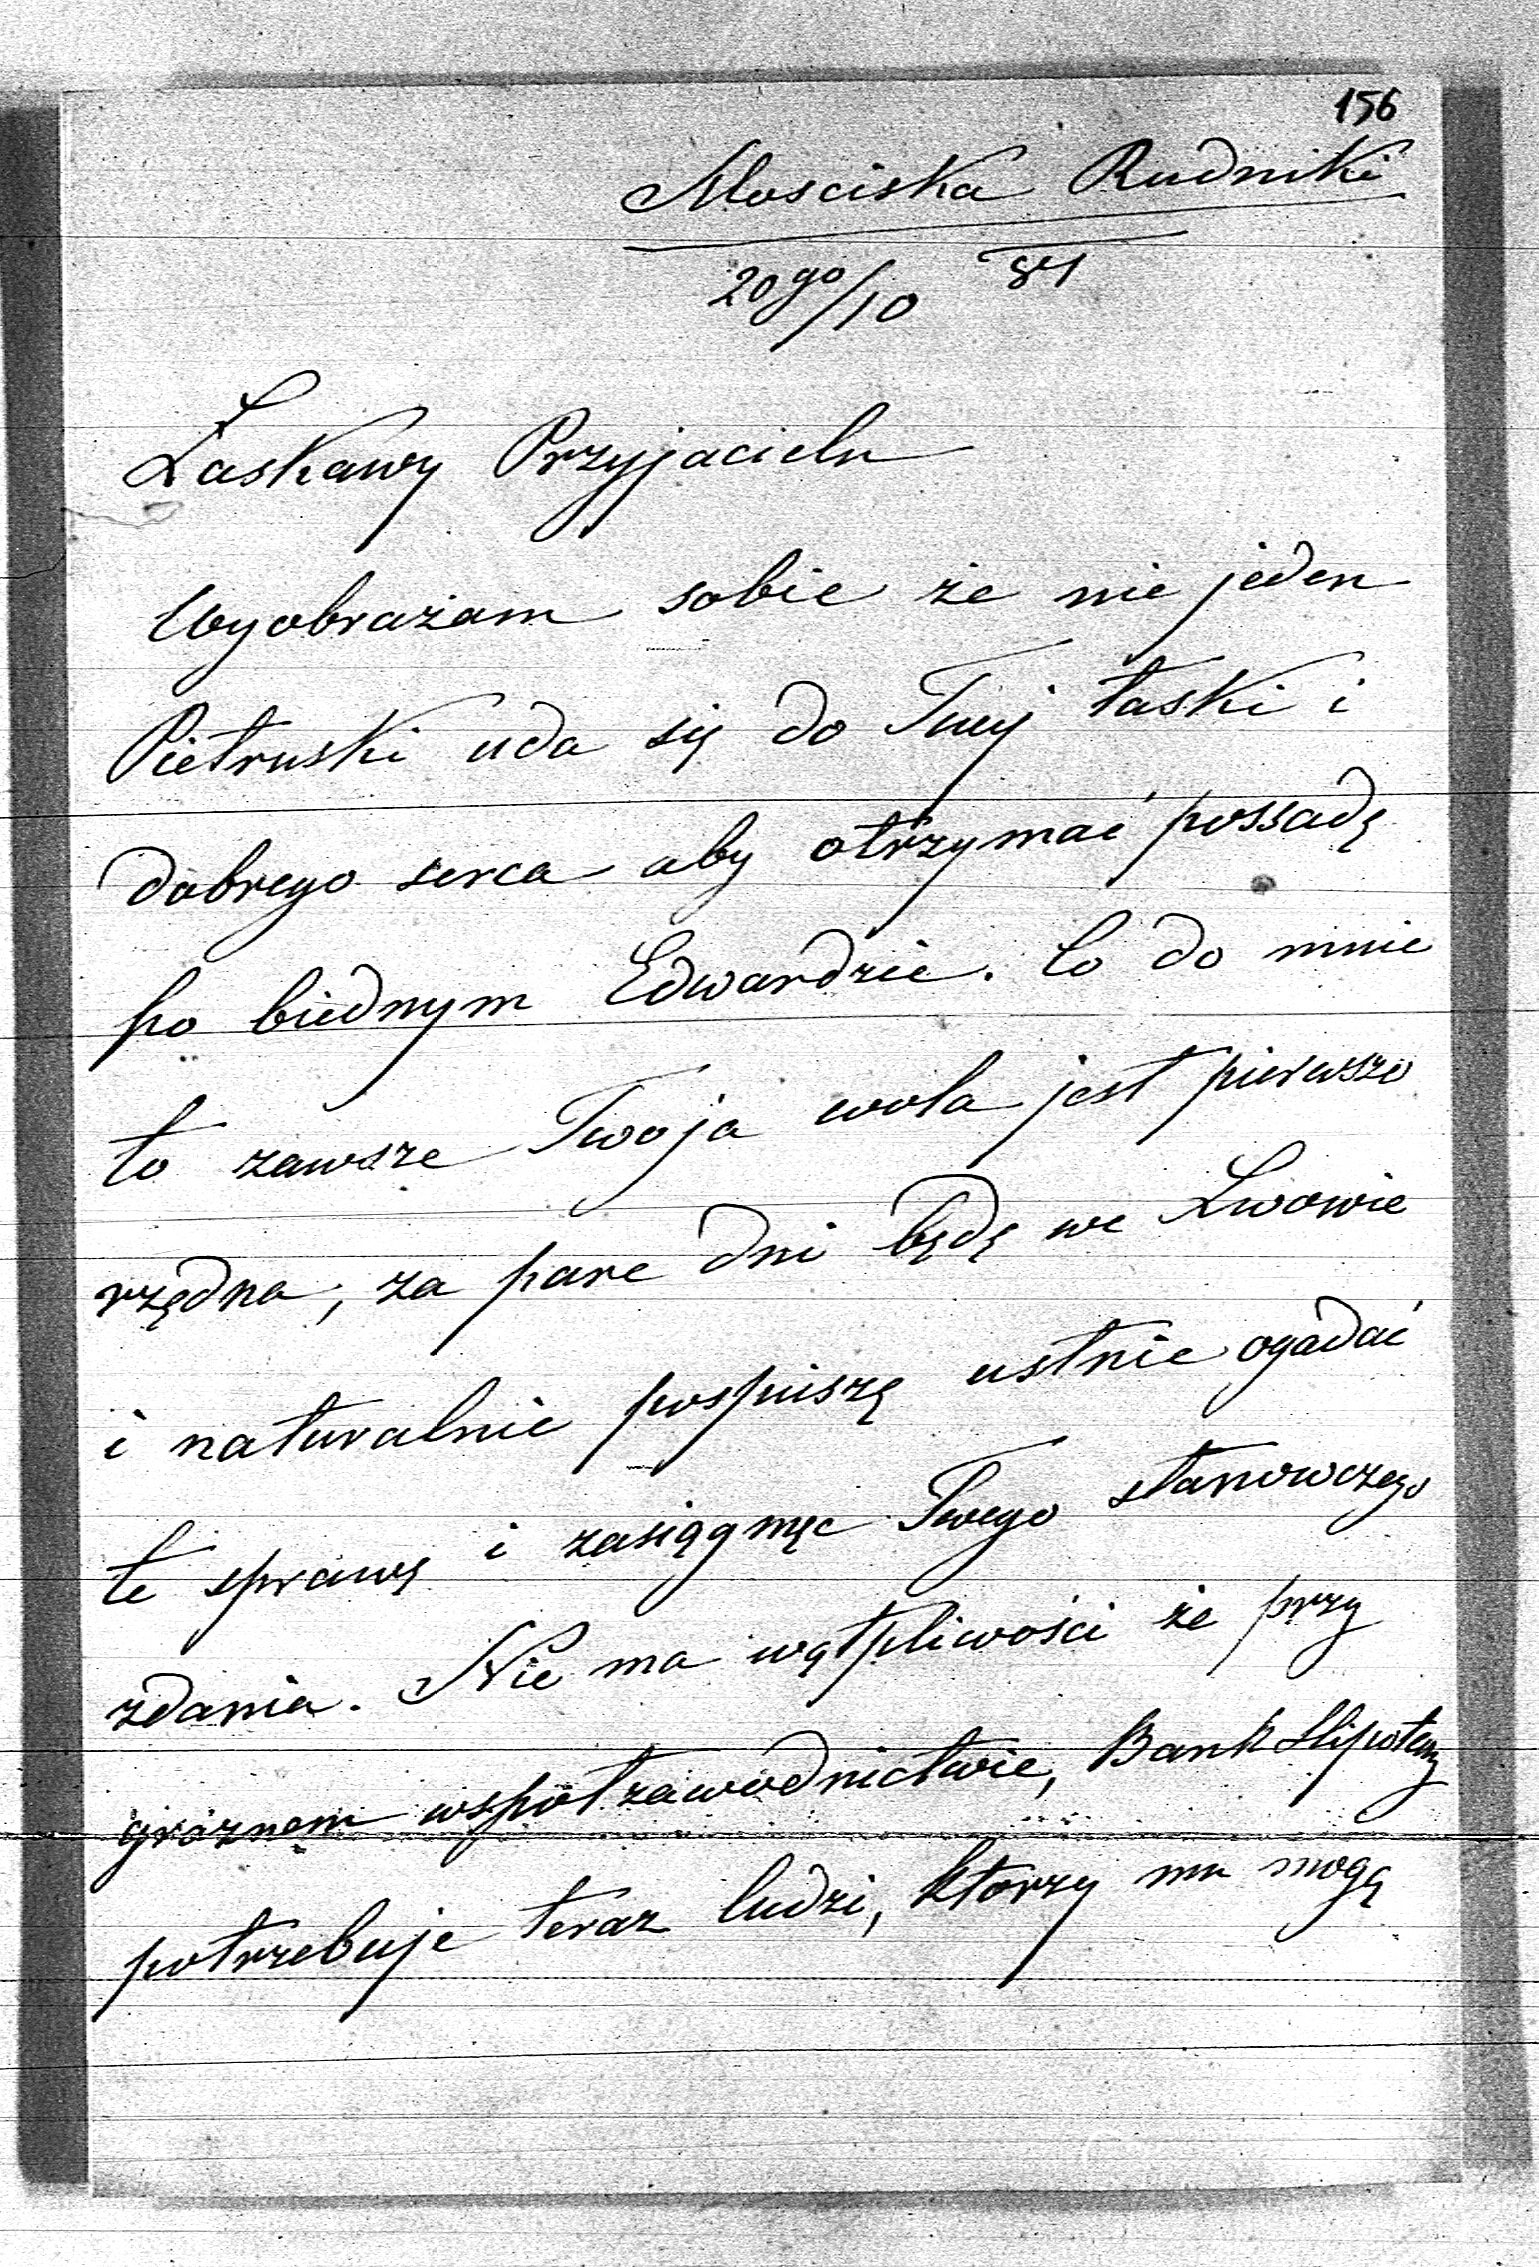 156
Mosciska Rudniki
20go/10 84
Łaskawy Przyjacielu
Wyobrażam sobie że nie jeden
Pietruski uda się do Twej łaski i
dobrego serca aby otrzymać possadę
po biednym Edwardzie. Co do mnie
to zawsze Twoja wola jest pierwszo
rzędna, za pare dni będę we Lwowie
i naturalnie pospieszę ustnie ogadać
te sprawę i zasięgnęc Twego stanowczego
zdania. Nie ma wątpliwości że przy
groznem współzawodnictwie, Bank Hipoteczny
potrzebuje teraz ludzi, ktorzy mu mogą